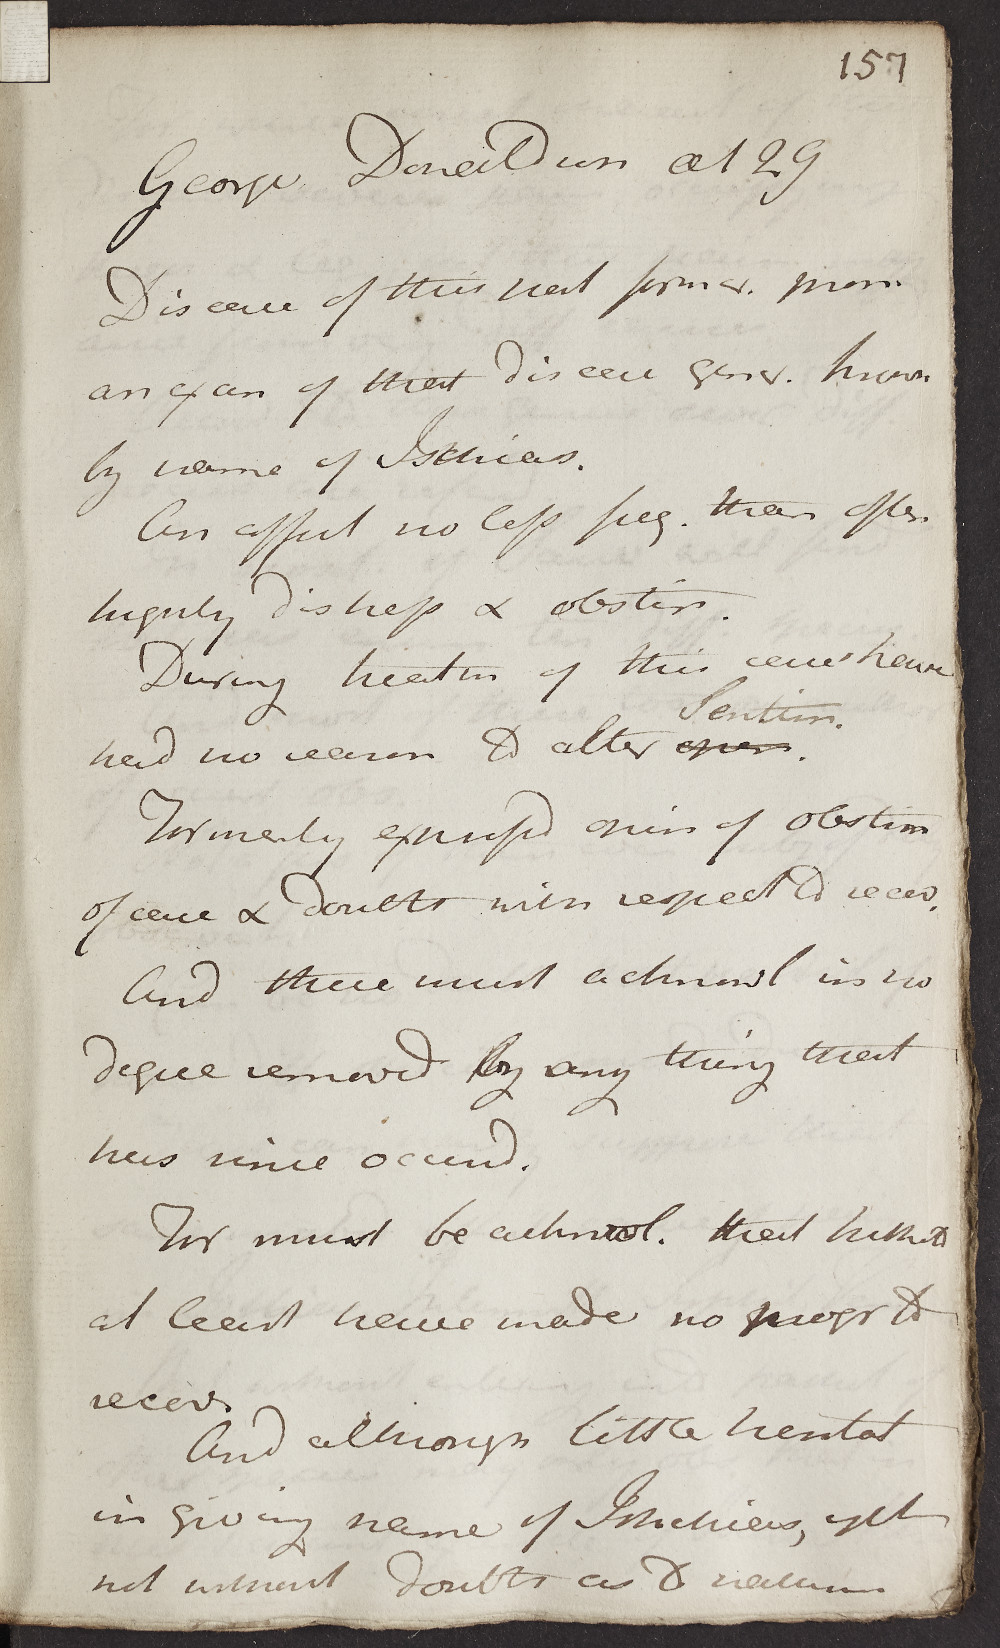 157
George Donaldson æt 29
Disease of this pat former. pron.
an exam of that disease gener. known
by name of Ischias.
An affect no less freq. than often
highly distress & obstin.
During treatm of this case have
Sentim.
had no reason to alter opin.
Formerly express'd opin of obstin
of case & doubts with respect to recov.
And these must acknowl in no
degree removed by any thing that
has since occurrd.
For must be acknowl. that hitherto
at least have made no progr to
recov.
And although little hesitat
in giving name of Ischias, yet
not without doubts as to nature